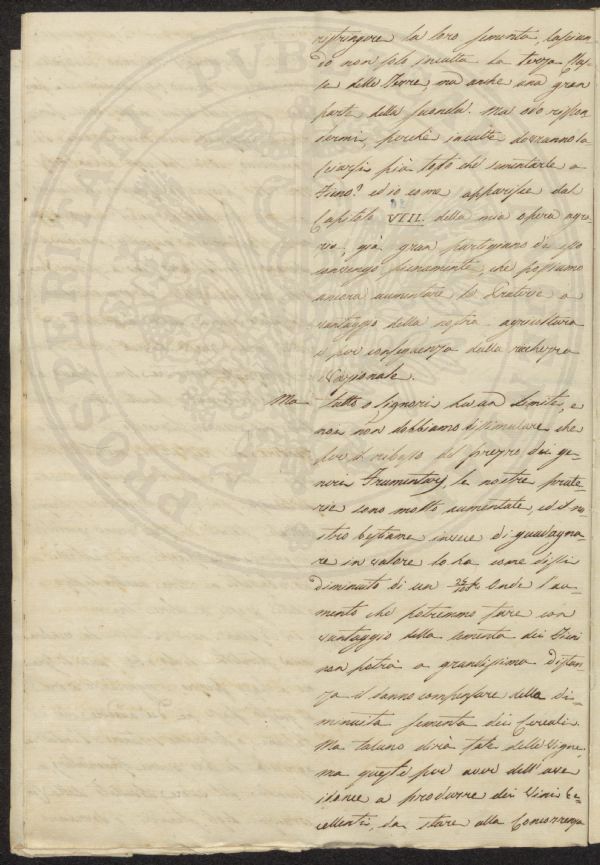 restringere la loro sementa, lascian-
do non solo inculta la terza Clas-
se delle Terre, ma anche una gran
parte della seconda. Ma odo rispon
dermi, perchè inculte dovranno la
sciarsi più tosto che sementarle a
Fieno? ed io come apparisce dal
Capitolo VIII. della mia opera agra-
ria, già gran partegiano di
convengo pienamente, che possiamo
ancora aumentare le Praterie a
vantaggio della nostra agricultura
e per conseguenza della ricchezza
Nazionale.
Ma tutto o Signori ha un limite, e
noi non dobbiamo dissimulare che
per il ribasso del prezzo dei ge-
neri Frumentarj, le nostre prate-
rie sono molto aumentate, ed il no
stro bestiame invece di guadagna-
re in valore lo ha come dissi
diminuito di un Onde l'au-
mento che potremmo fare con
vantaggio della sementa dei Fieni
non potrà a grandissima distan-
za il danno compensare della di-
minuita sementa dei Cereali.
Ma taluno dirà, fate delle Vigne,
ma queste per aver dell'ave
idonee a produrre dei Vini Ec-
cellenti, da stare alla Concorrenza
PROSPERITATI PUBLICAE